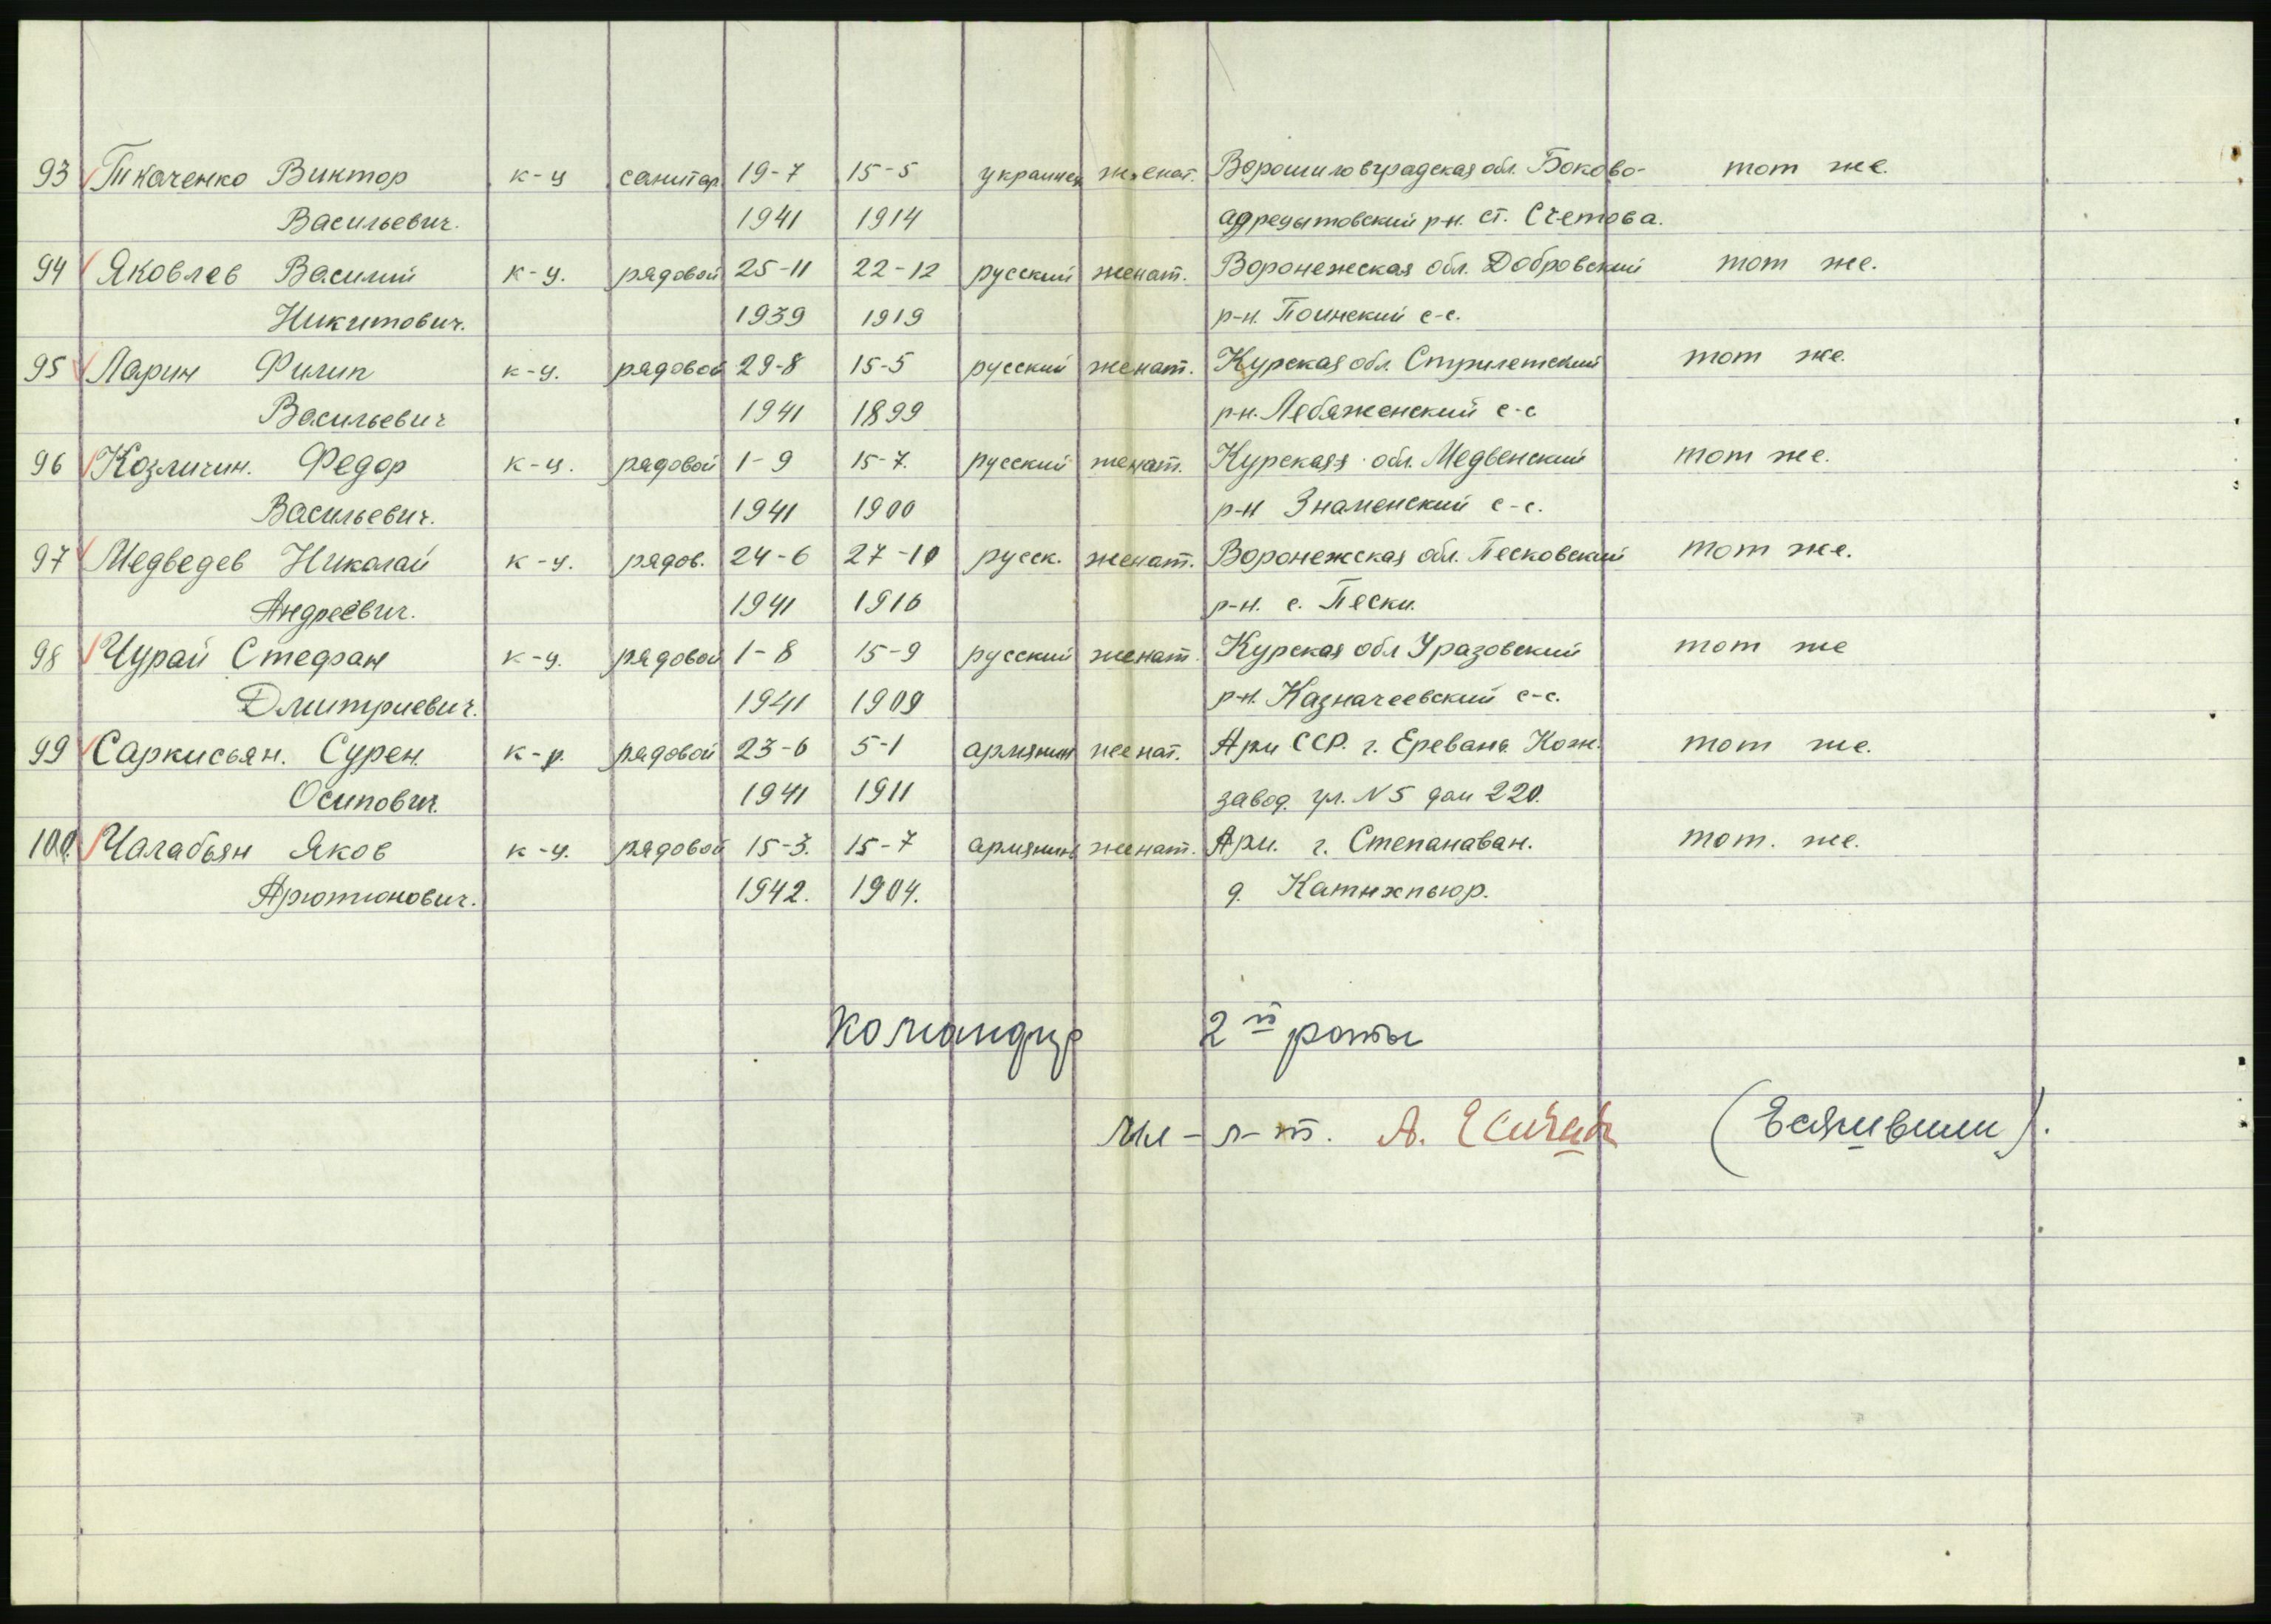 93 Ткаченко Виктор к-ц санитар 19-7 15-5 украинец женат. Ворошиловградская обл. Боково- тот же.
Васильевич. 1941 1914 р-н. ст. Счетова.
94 Яковлев Василий к-ц. рядовой 25-11 22-12 русский женат. Воронежская обл. Добровский тот же.
Никитович. 1939 1919 р-н. Поинский с-с.
95 Ларин Филип к-ц. рядовой 29-8 15-5 русский женат. Курская обл. Стрилетский тот же.
Васильевич 1941 1899 р-н. Лебяженский с-с
96 Козличин. Федор к-ц. рядовой 1-9 15-7. русский женат. Курская обл. Медвенский тот же.
Васильевич. 1941 1900 р-н Знаменский с-с.
97 Медведев Николай к-ц. рядов. 24-6 27-10 русск. женат. Воронежская обл. Песковский тот же.
Андреевич. 1941 1916 р-н. с. Пески.
98 Чурай Стефан к-ц. рядовой 1-8 15-9 русский женат. Курская обл Уразовский тот же
Дмитриевич. 1941 1909 р-н. Казначеевский с-с.
99 Саркисьян. Сурен. к-р. рядовой 23-6 5-1 армянин женат. Арм ССР. г. Еревана Кож. тот же.
Осипович. 1941 1911 завод. ул. N5 дом 220.
100. Чалабьян Яков к-ц. рядовой 15-3. 15-7 армянин женат. Арм. г. Степанаван. тот. же.
Арютюнович. 1942. 1904. д. Катнжпьюр.
Командир 2й роты
мл-л-т. А.